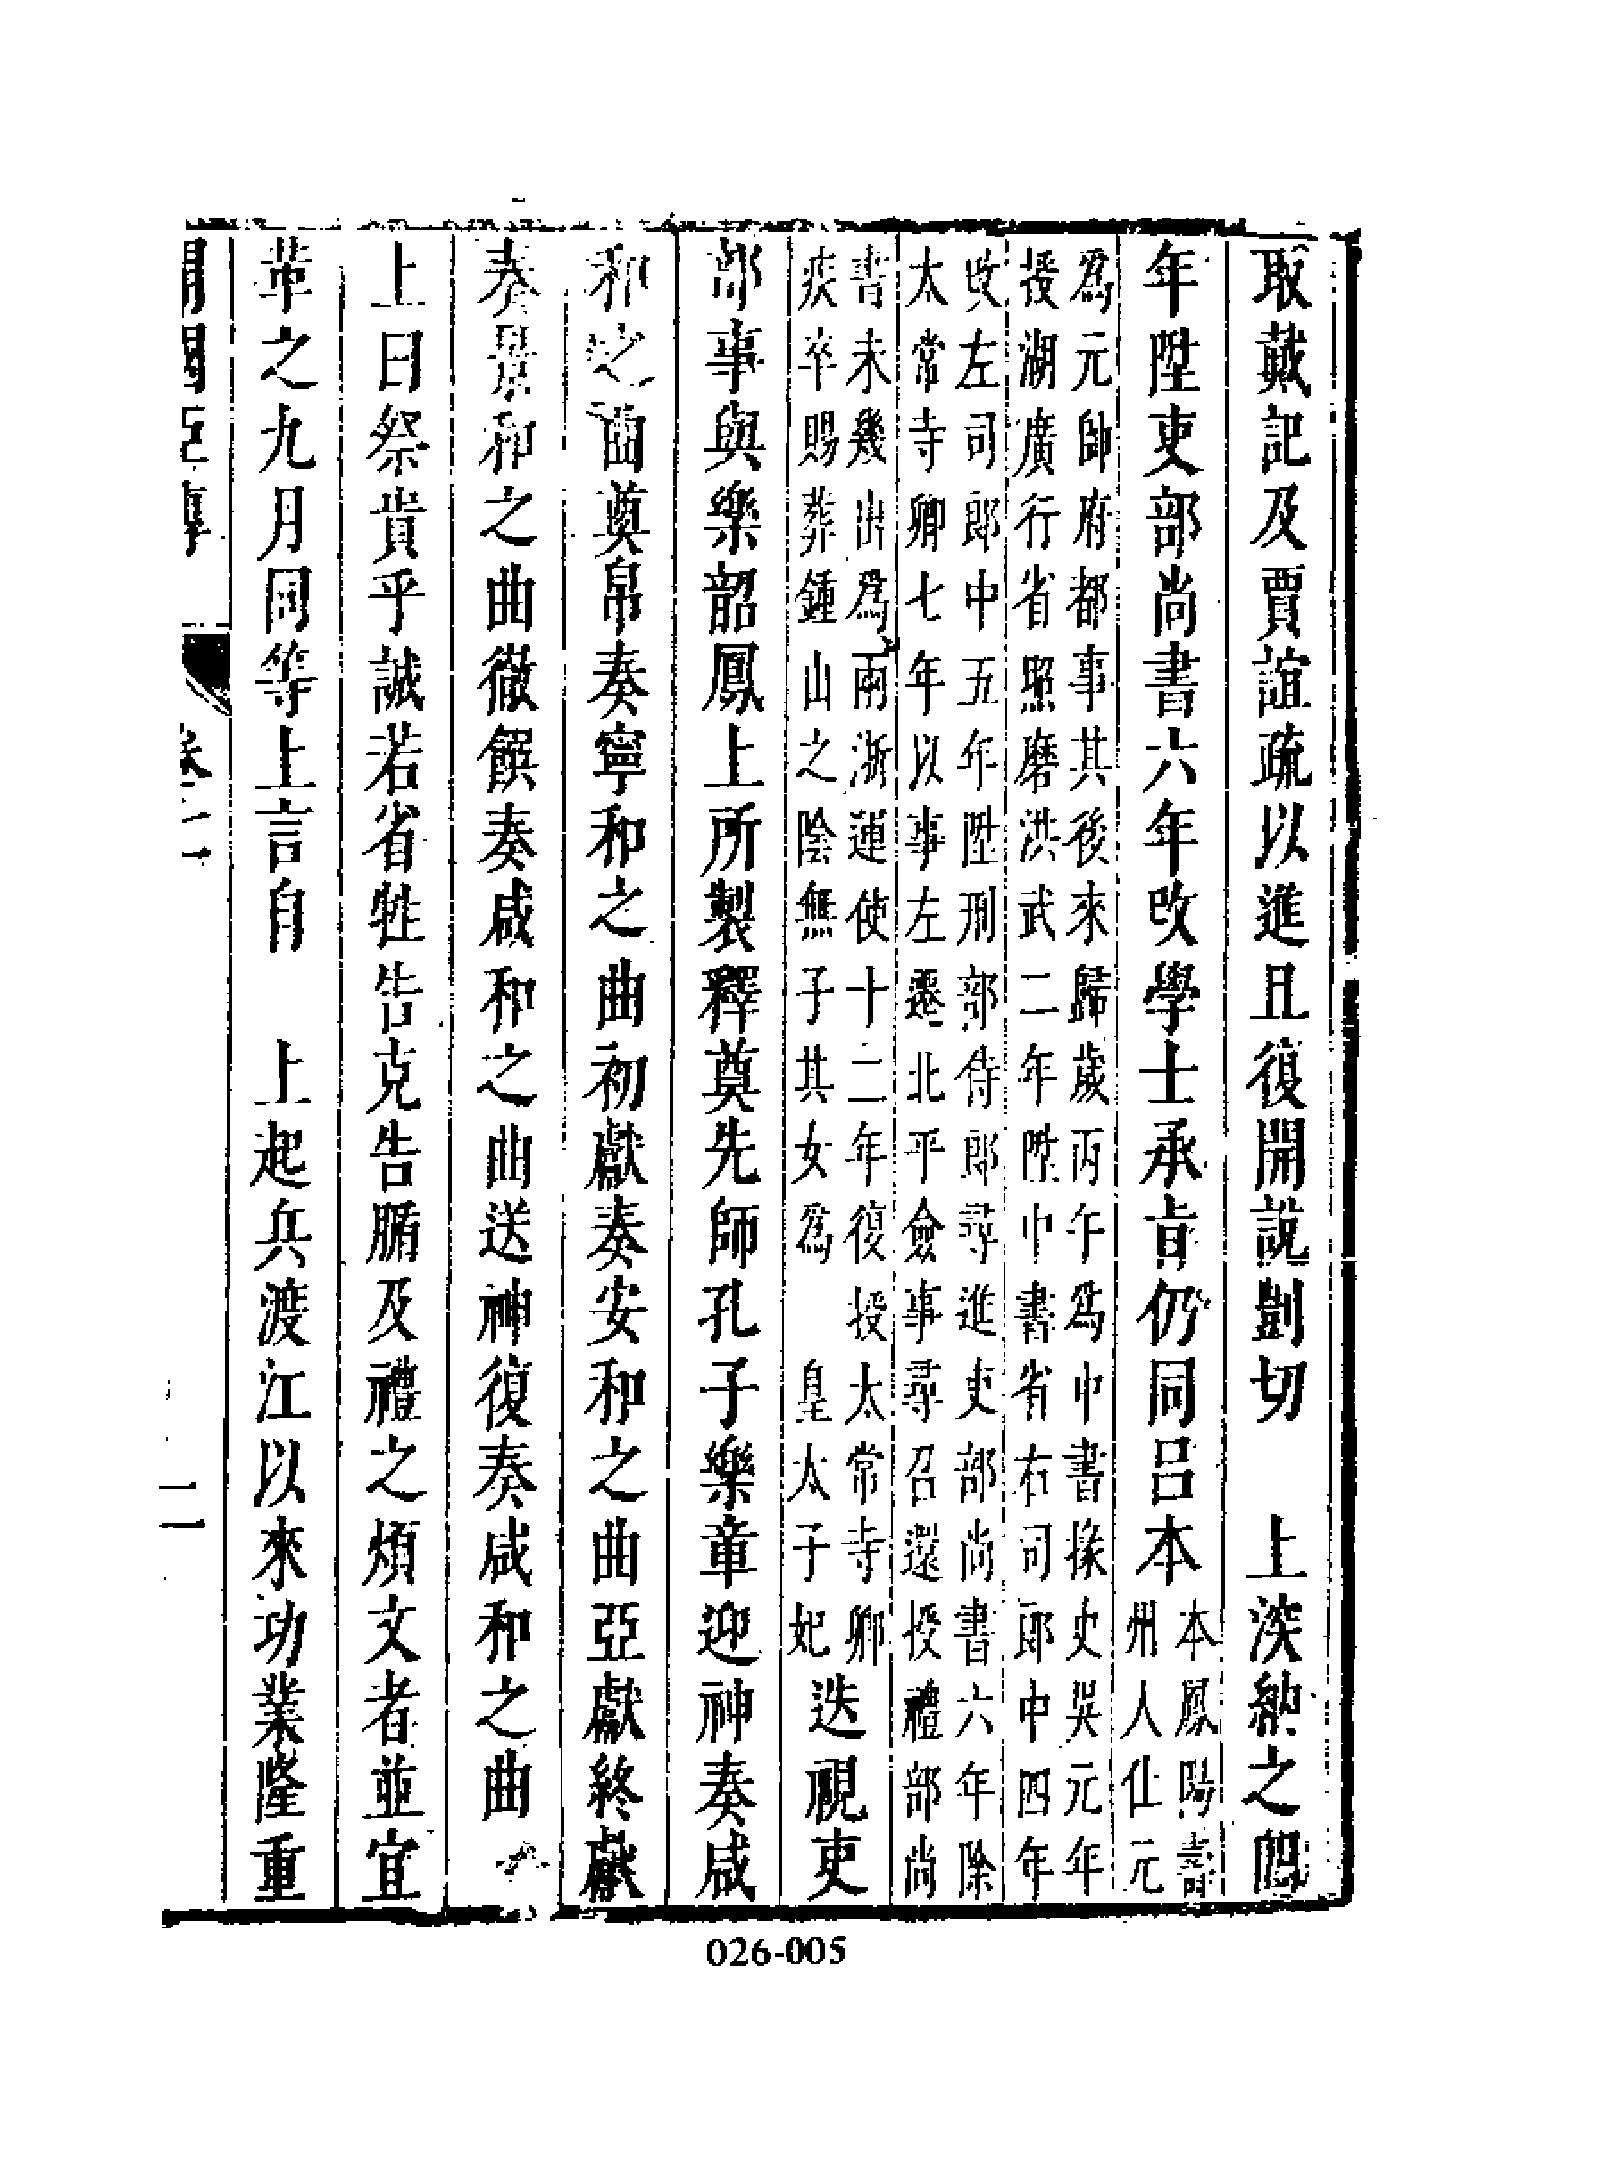 取戴記及賈誼疏以進且復開說剴切　上深納之四
年陞吏部尚書六年改學士承旨仍同呂本
本鳳陽壽
州人仕元
為元帥府都事其後來歸歲丙午為中書掾史吳元年
授湖廣行省照磨洪武二年陞中書省右司郎中四年
改左司郎中五年陞刑部侍郎尋進吏部尚書六年除
太常寺卿七年以事左遷北平僉事尋召還授禮部尚
書未幾出為兩浙運使十二年復授太常寺卿
疾卒賜葬鍾山之陰無子其女為　皇太子妃
迭視吏
部事與樂韶鳳上所製釋奠先師孔子樂章迎神奏咸
和之曲奠帛奏寧和之曲初獻奏安和之曲亞獻終獻
奏景和之曲徹饌奏咸和之曲送神復奏咸和之曲
上曰祭貴乎誠若省牲告克告腯及禮之煩文者並宜
革之九月同等上言自　上起兵渡江以來功業隆重
開國臣傳
卷二
二
026-005